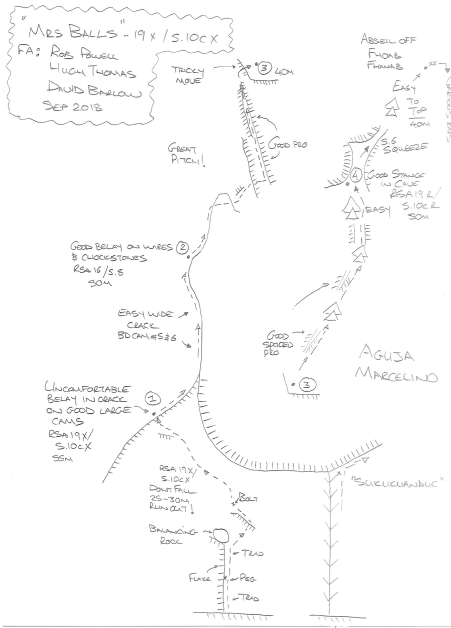 "MRS BALLS" - 19X / 5.10CX
FA: ROB POWELL
HUGH THOMAS
DAVID BARLOW
SEP 2018
TRICKY
MOVE
3
40M
GOOD PRO
GREAT
PITCH!
ABSEIL OFF
EASY
TO
TOP
40M
5.6
SQUEEZE
4
GOOD STANCE
IN CAVE
RSA 19R/
5.10CR
50M
EASY
GOOD BELAY ON WIRES
& CHOCKSTONES
RSA 16/5.8
50M
2
EASY WIDE
CRACK
BD CAM #5 & 6
GOOD
SPACED
PRO
3
AGUJA
MARCELINO
UNCOMFORTABLE
BELAY IN CRACK
ON GOOD LARGE
CAMS
RSA 19X/
5.10CX
55M
1
RSA 19X/
5.10CX
DONT FALL
25-30M
RUN OUT!
BOLT
BALANCING
ROCK
TRAD
FLAKE
PEG
TRAD